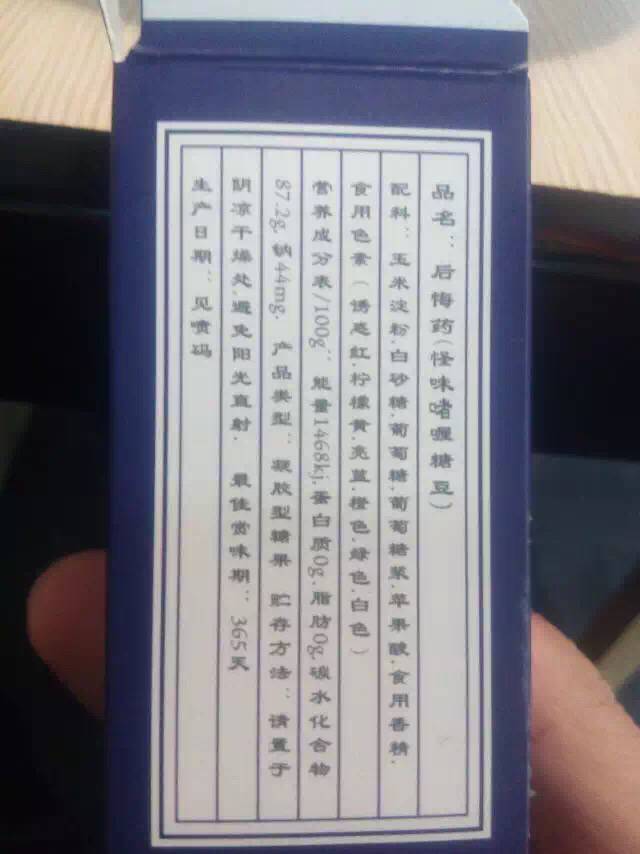 品名：后悔药(怪味啫喱糖豆)
配料：玉米淀粉.白砂糖.葡萄糖.葡萄糖浆.苹果酸.食用香精.
食用色素(诱惑红.柠檬黄.亮蓝.橙色.绿色.白色)
营养成分表/100g：能量1468kj.蛋白质0g.脂肪0g.碳水化合物
87.2g.钠44mg. 产品类型：凝胶型糖果 贮存方法：请置于
阴凉干燥处.避免阳光直射. 最佳赏味期：365天
生产日期：见喷码